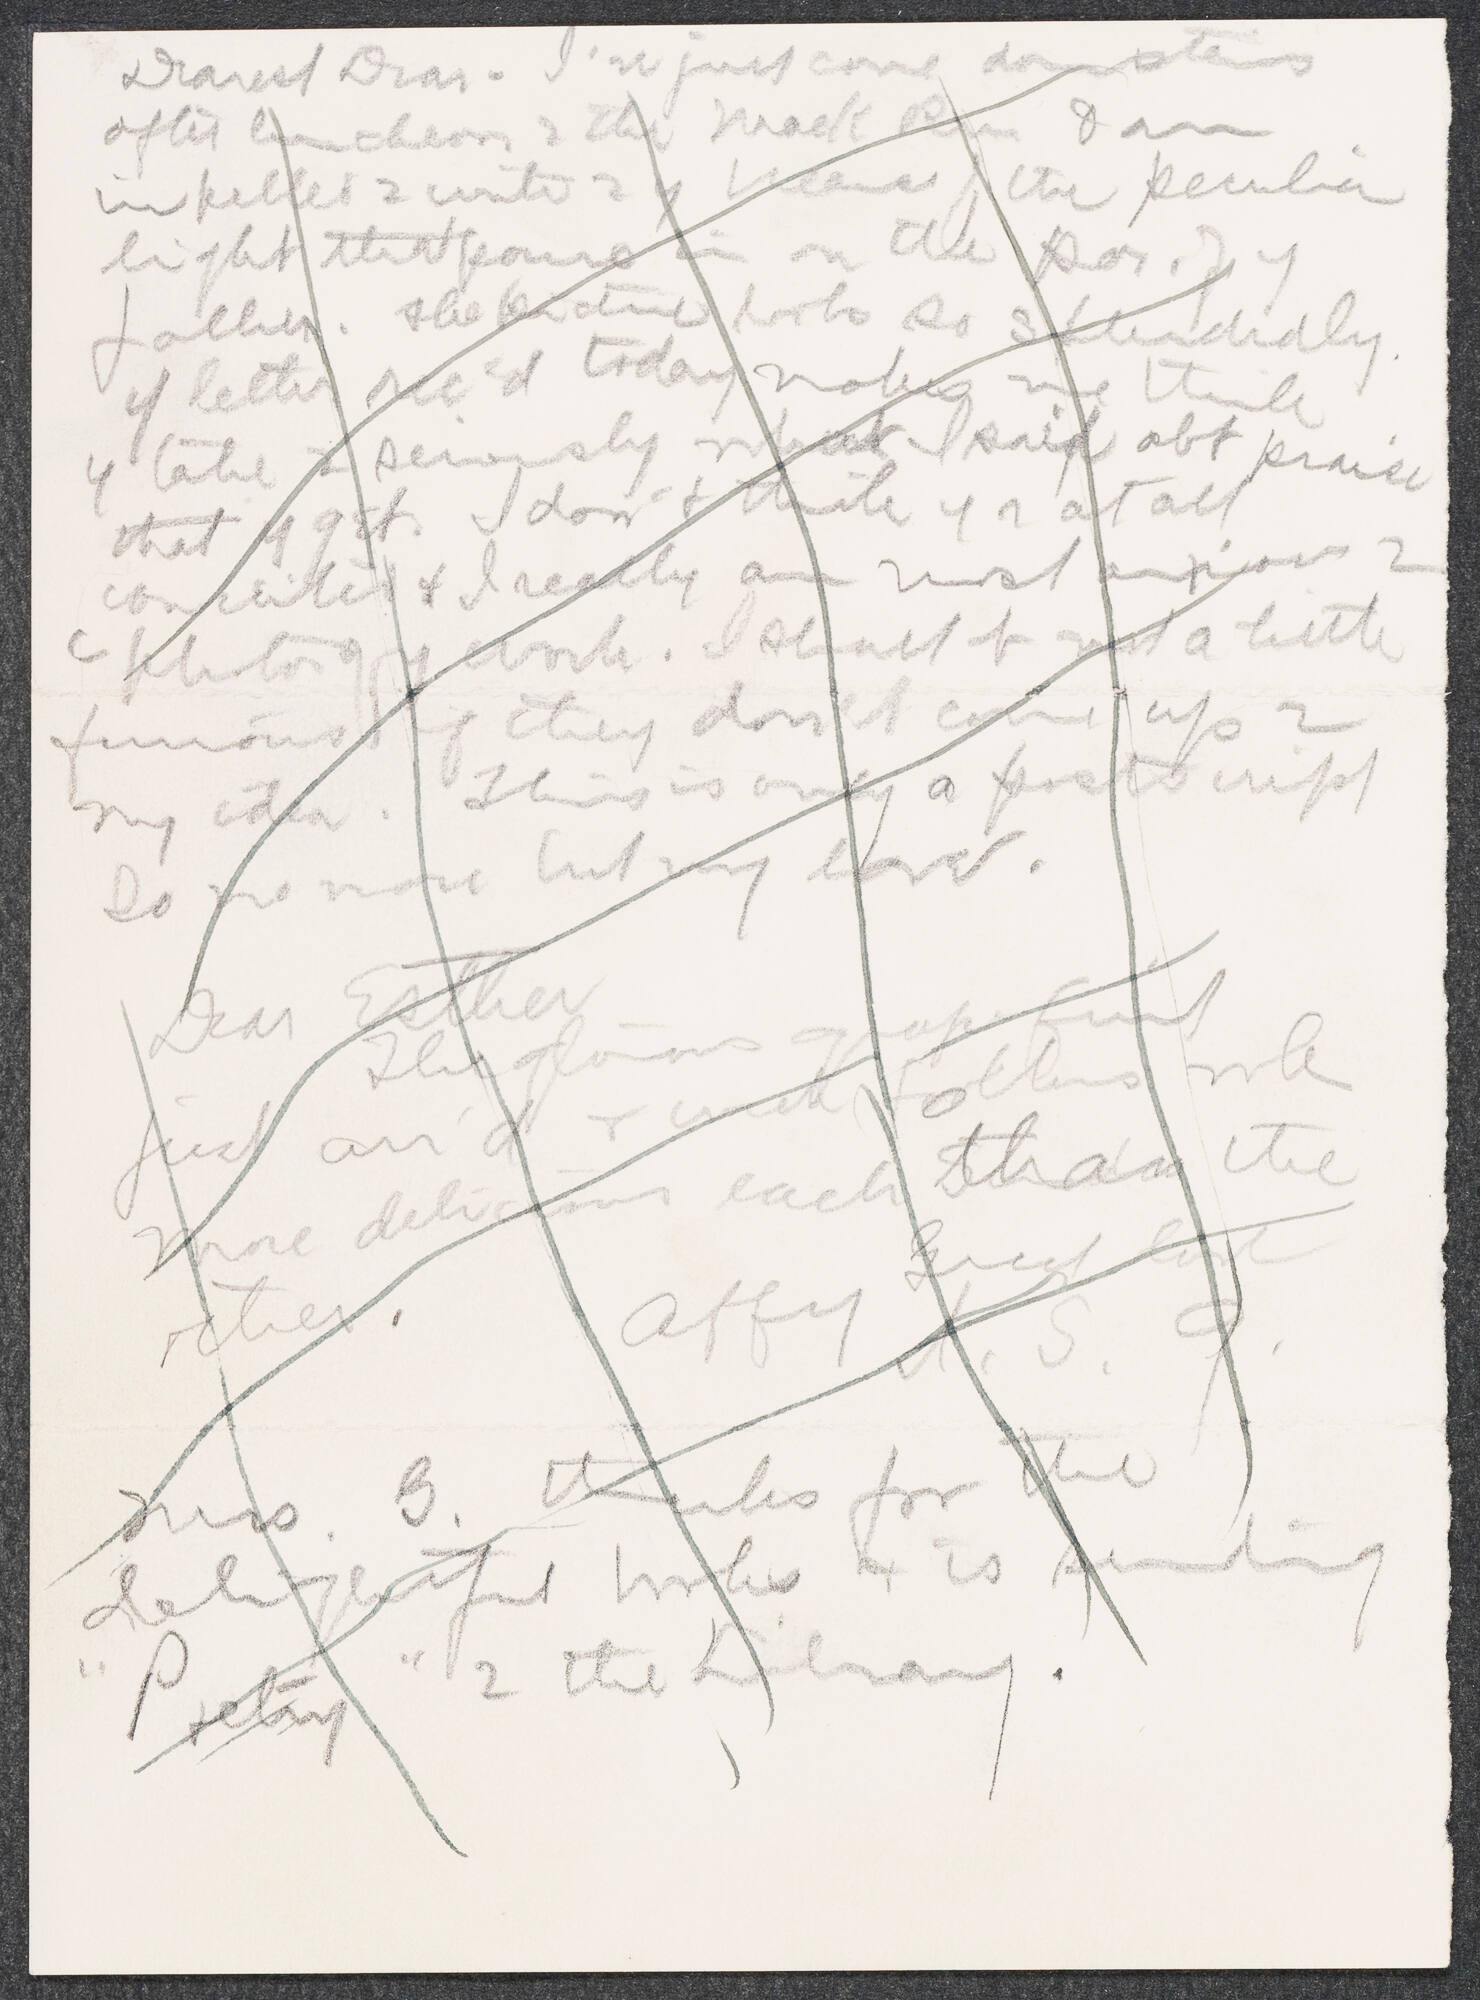 Dearest Dear. I've just come downstairs
after luncheon & the Mack Run & am
impelled 2 write 2 y because of the peculiar
light that pours in on the por. of y
father. The picture looks so splendidly.
y letter rec'd today makes me think
y take 2 seriously what I said abt praise
that y get. I don't think y r at all
conceited & I really am most anxious 2
c photos of y work. I shall b not a little
furious if they don't come up 2
my idea. This is only a postscript
So no more but my love.
Dear Esther
The glorious grapefruit
just arr'd & each follows wh
more delicious each than the
other. Great love
Affy I. S. G.
Mrs. B. thanks for the
delightful books & is sending
" P " 2 the Library.